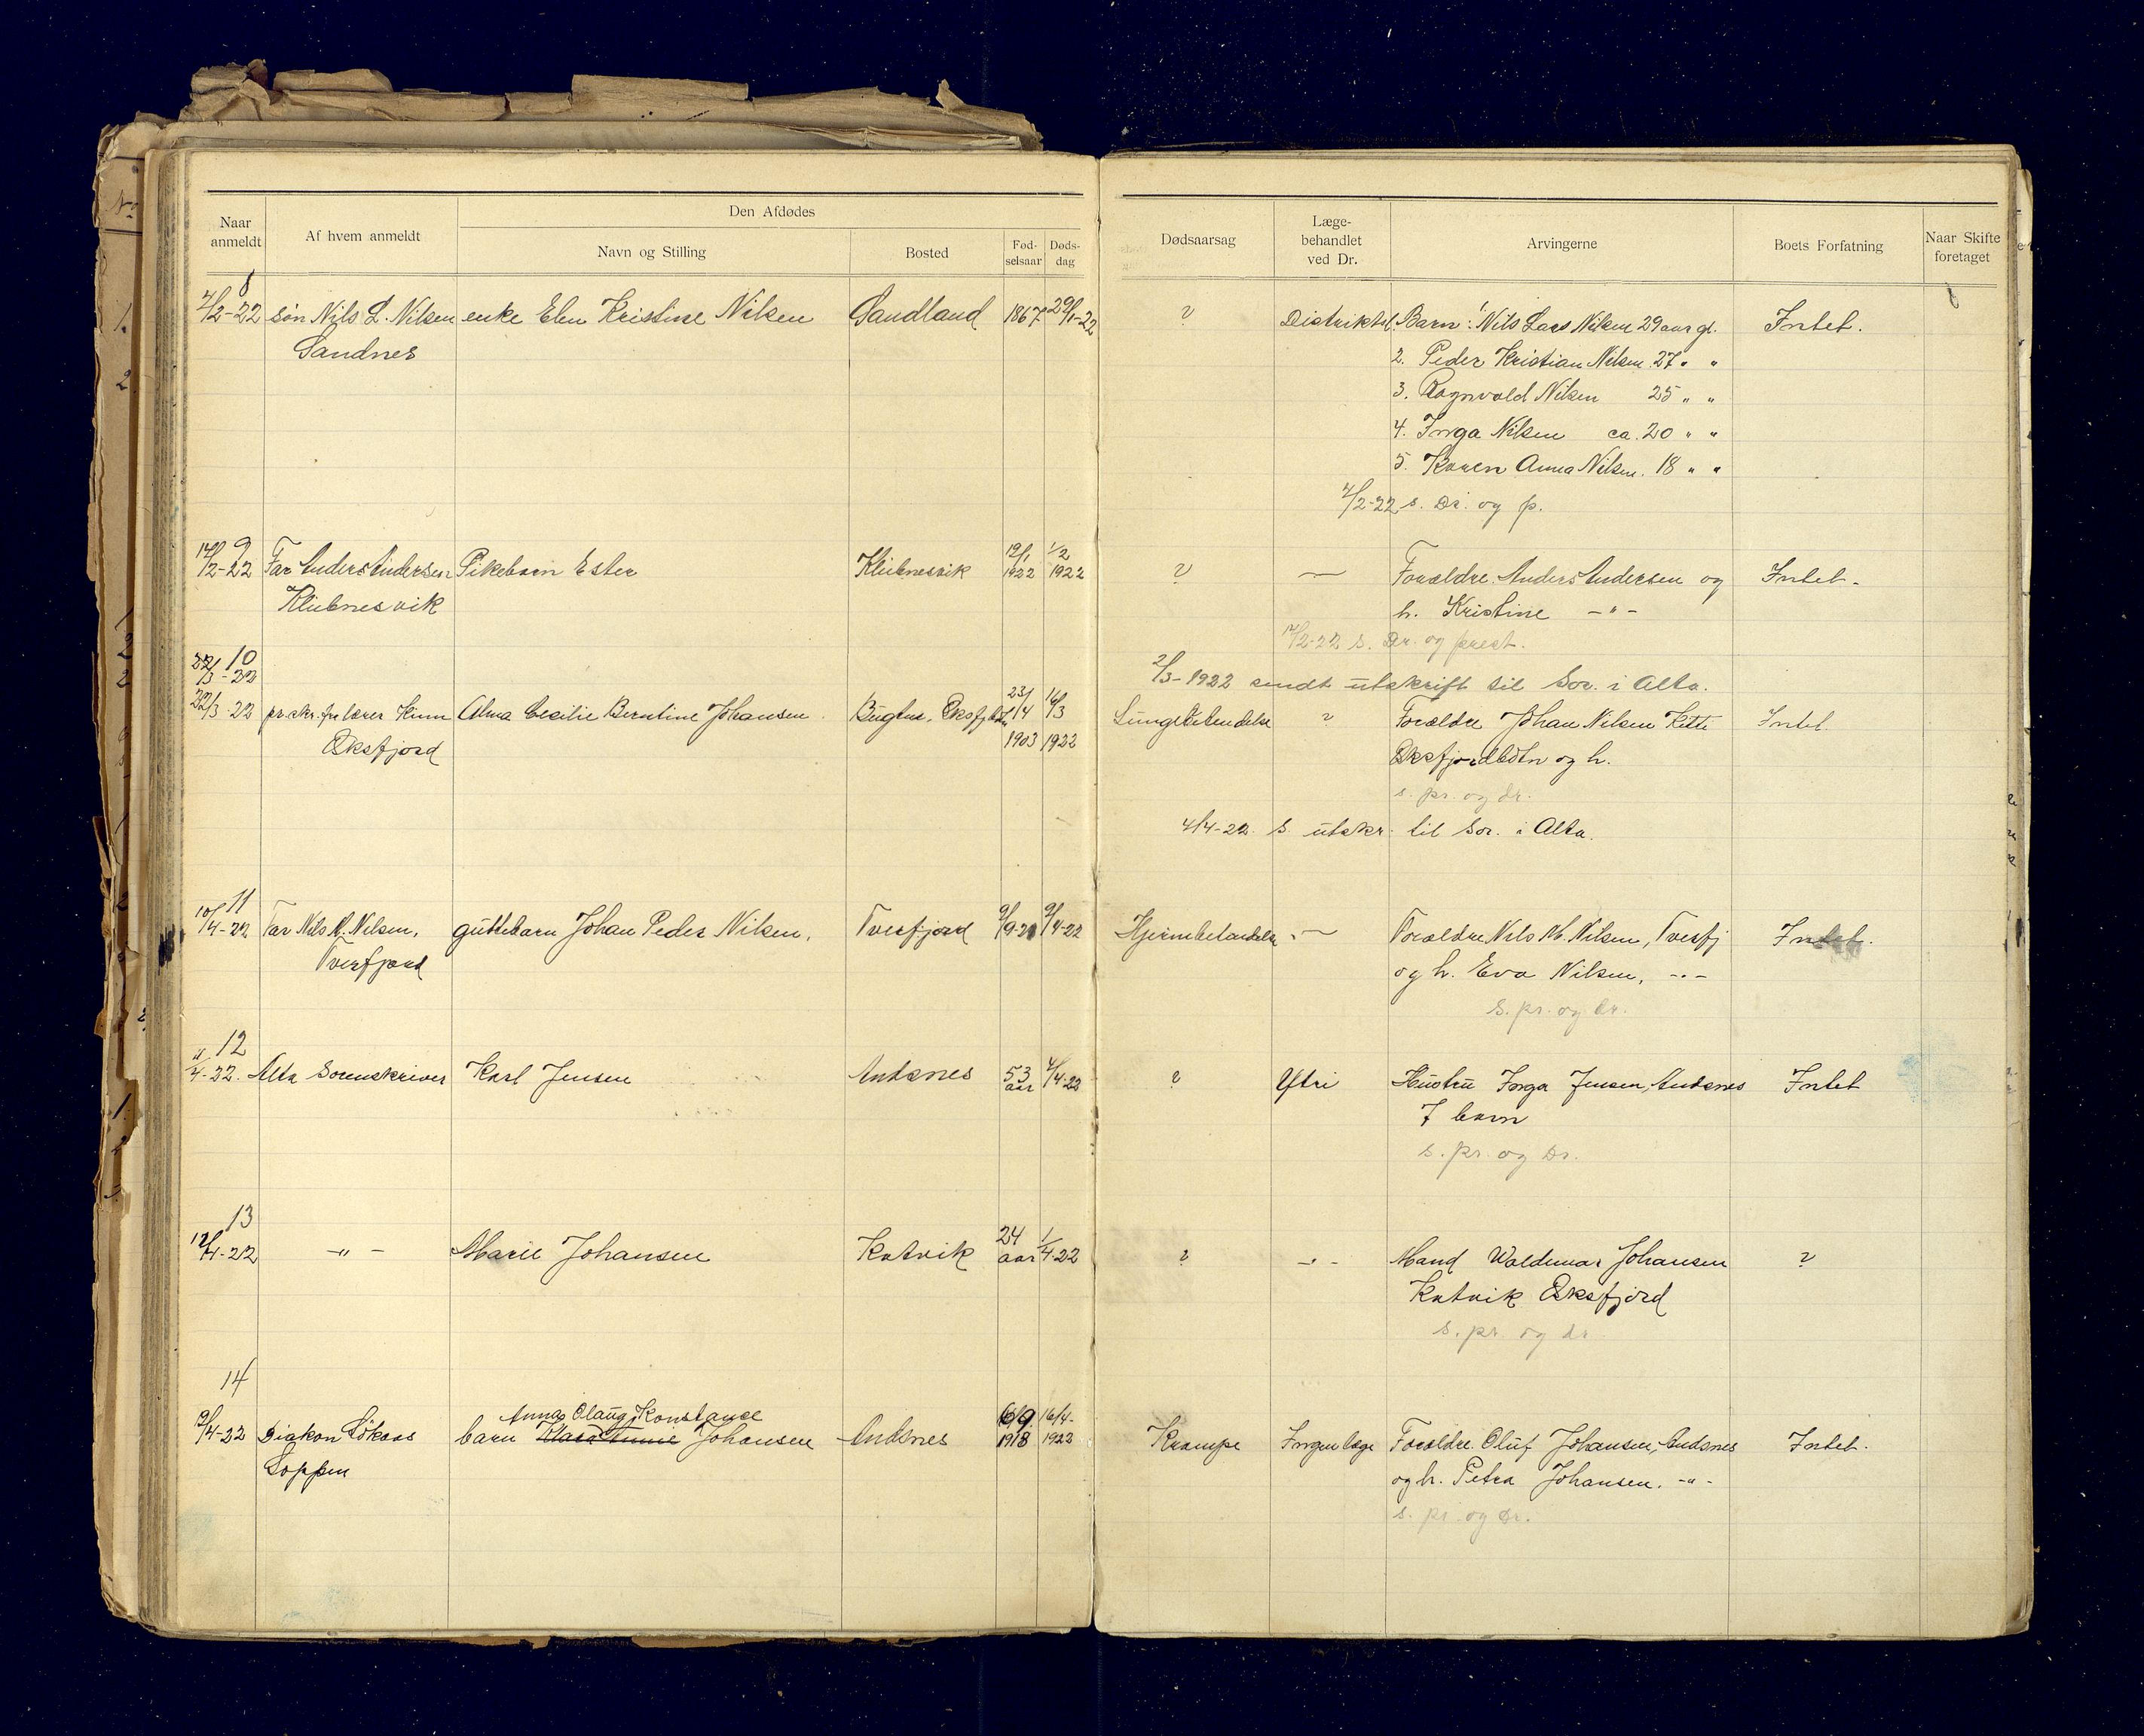 Naar anmeldt
Af hvem anmeldt
Den Afdødes
Navn og Stilling
Bosted
Fød-selsaar
Døds-dag
Dødsaarsag
Læge-behandlet ved Dr.
Arvingerne
Boets Forfatning
Naar Skifte foretaget
8
4/2-22 søn Nils L. Nilsen enke Elen Kristine Nilsen Sandland 1867 29/1-22 ? Distriktsl. Barn: 1. Nils Lars Nilsen 29 aar gl. Intet.
Sandnes
2. Peder Kristian Nilsen 27 " "
3. Ragnvald Nilsen 25 " "
4. Inga Nilsen ca. 20 " "
5. Karen Anna Nilsen. 18 " "
4/2-22 s. Dr. og p.
9
14/2-22 Far Anders Andersen Pikebarn Ester Klubnesvik 19/1 1922 1/2 1922 ? — Forældre Anders Andersen og Intet.
Klubnesvik
h. Kristine -"-
s. Dr. og prest.
10
2/3-1922 sendt utskrift til Sor. i Alta.
22/3-22 lærer Alma Cecilie Berntine Johansen 23/14 1903 16/3 1922 Lungebetendelse ? Forældre Johan Nilsen Intet.
Øksfjord
Øksfjordbotn og h.
s. pr. og dr.
4/4-22. s. utskr. til Sor. i Alta.
11
10/4-22 Far Nils M. Nilsen, guttebarn Johan Peder Nilsen, Tverfjord 9/4-22 Hjernebetændelse — Forældre Nils M. Nilsen, Tverfj Intet.
Tverfjord
og h. Eva Nilsen, -"-
s. pr. og dr.
12
4-22. Alta Sorenskriver Karl Jensen Andsnes 53 aar 4/4-22 ? Ytri Hustru Inga Jensen, Andsnes Intet
7 barn
s. pr. og Dr.
13
12/4-22 -"- Marie Johansen Kutvik 24 aar 1/4-22 ? -"- Mand Waldemar Johansen ?
Kutvik Øksfjord
s. pr. og dr
14
Anna Olaug Konstance
19/4-22 Diakon Løkaas barn Johansen Andsnes 1918 16/4-1922 Krampe Ingen læge Forældre Oluf Johansen, Andsnes Intet.
Loppen
og h. Petra Johansen. -"-
s. pr. og Dr.